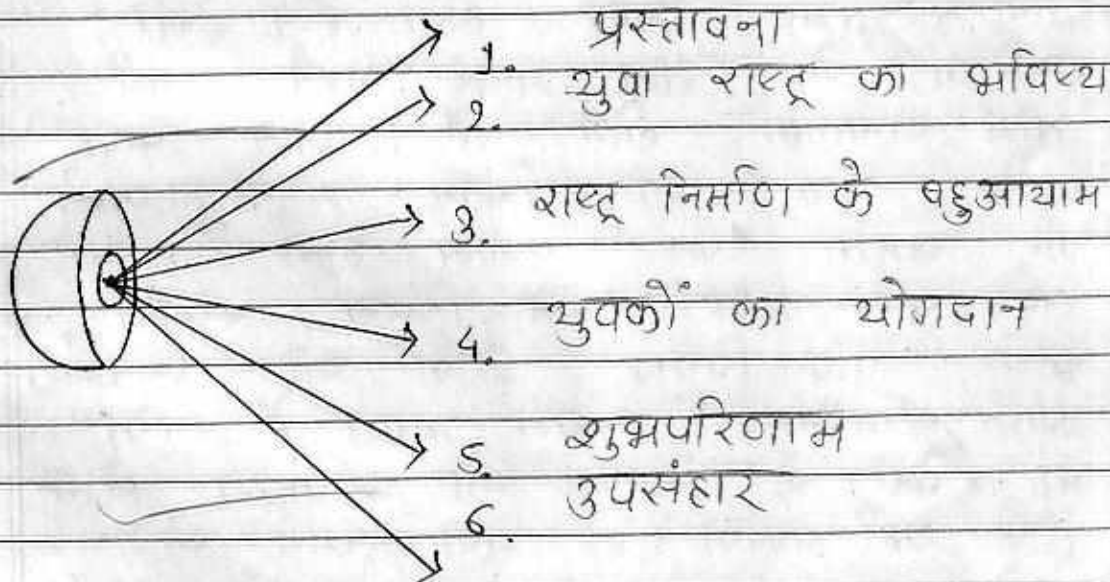 1. प्रस्तावना
2. युवा राष्ट्र का भविष्य
3. राष्ट्र निर्माण के बहुआयाम
4. युवकों का योगदान
5. शुभपरिणाम
6. उपसंहार